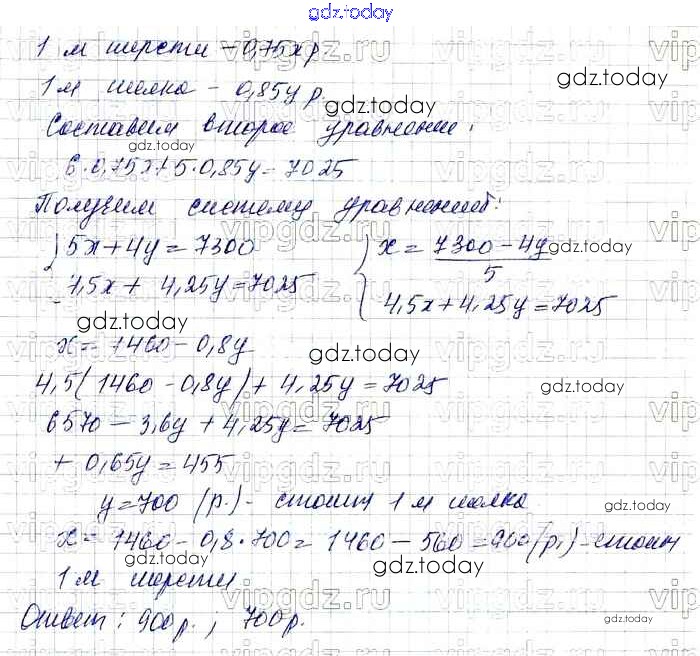 gdz.today
1 м шерсти - 0,75x р.
1 м шелка - 0,85y р.
gdz.today
Составим второе уравнение:
gdz.today
6·0,75x+5·0,85y=7025
Получим систему уравнений:
5x+4y=7300
4,5x+4,25y=7025
x=7300-4y
5
gdz.today
4,5x+4,25y=7025
gdz.today
x=1460-0,8y
gdz.today
4,5(1460-0,8y)+4,25y=7025
gdz.today
6570-3,6y+4,25y=7025
+0,65y=455
y=700 (р.)- стоит 1 м шелка
gdz.today
x=1460-0,8·700=1460-560=900(р.)-стоит
gdz.today
gdz.today
1 м шерсти
Ответ: 900р.; 700р.
gdz.today